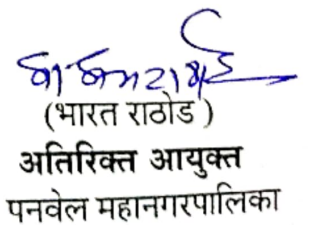 (भारत राठोड )
अतिरिक्त आयुक्त
पनवेल महानगरपालिका